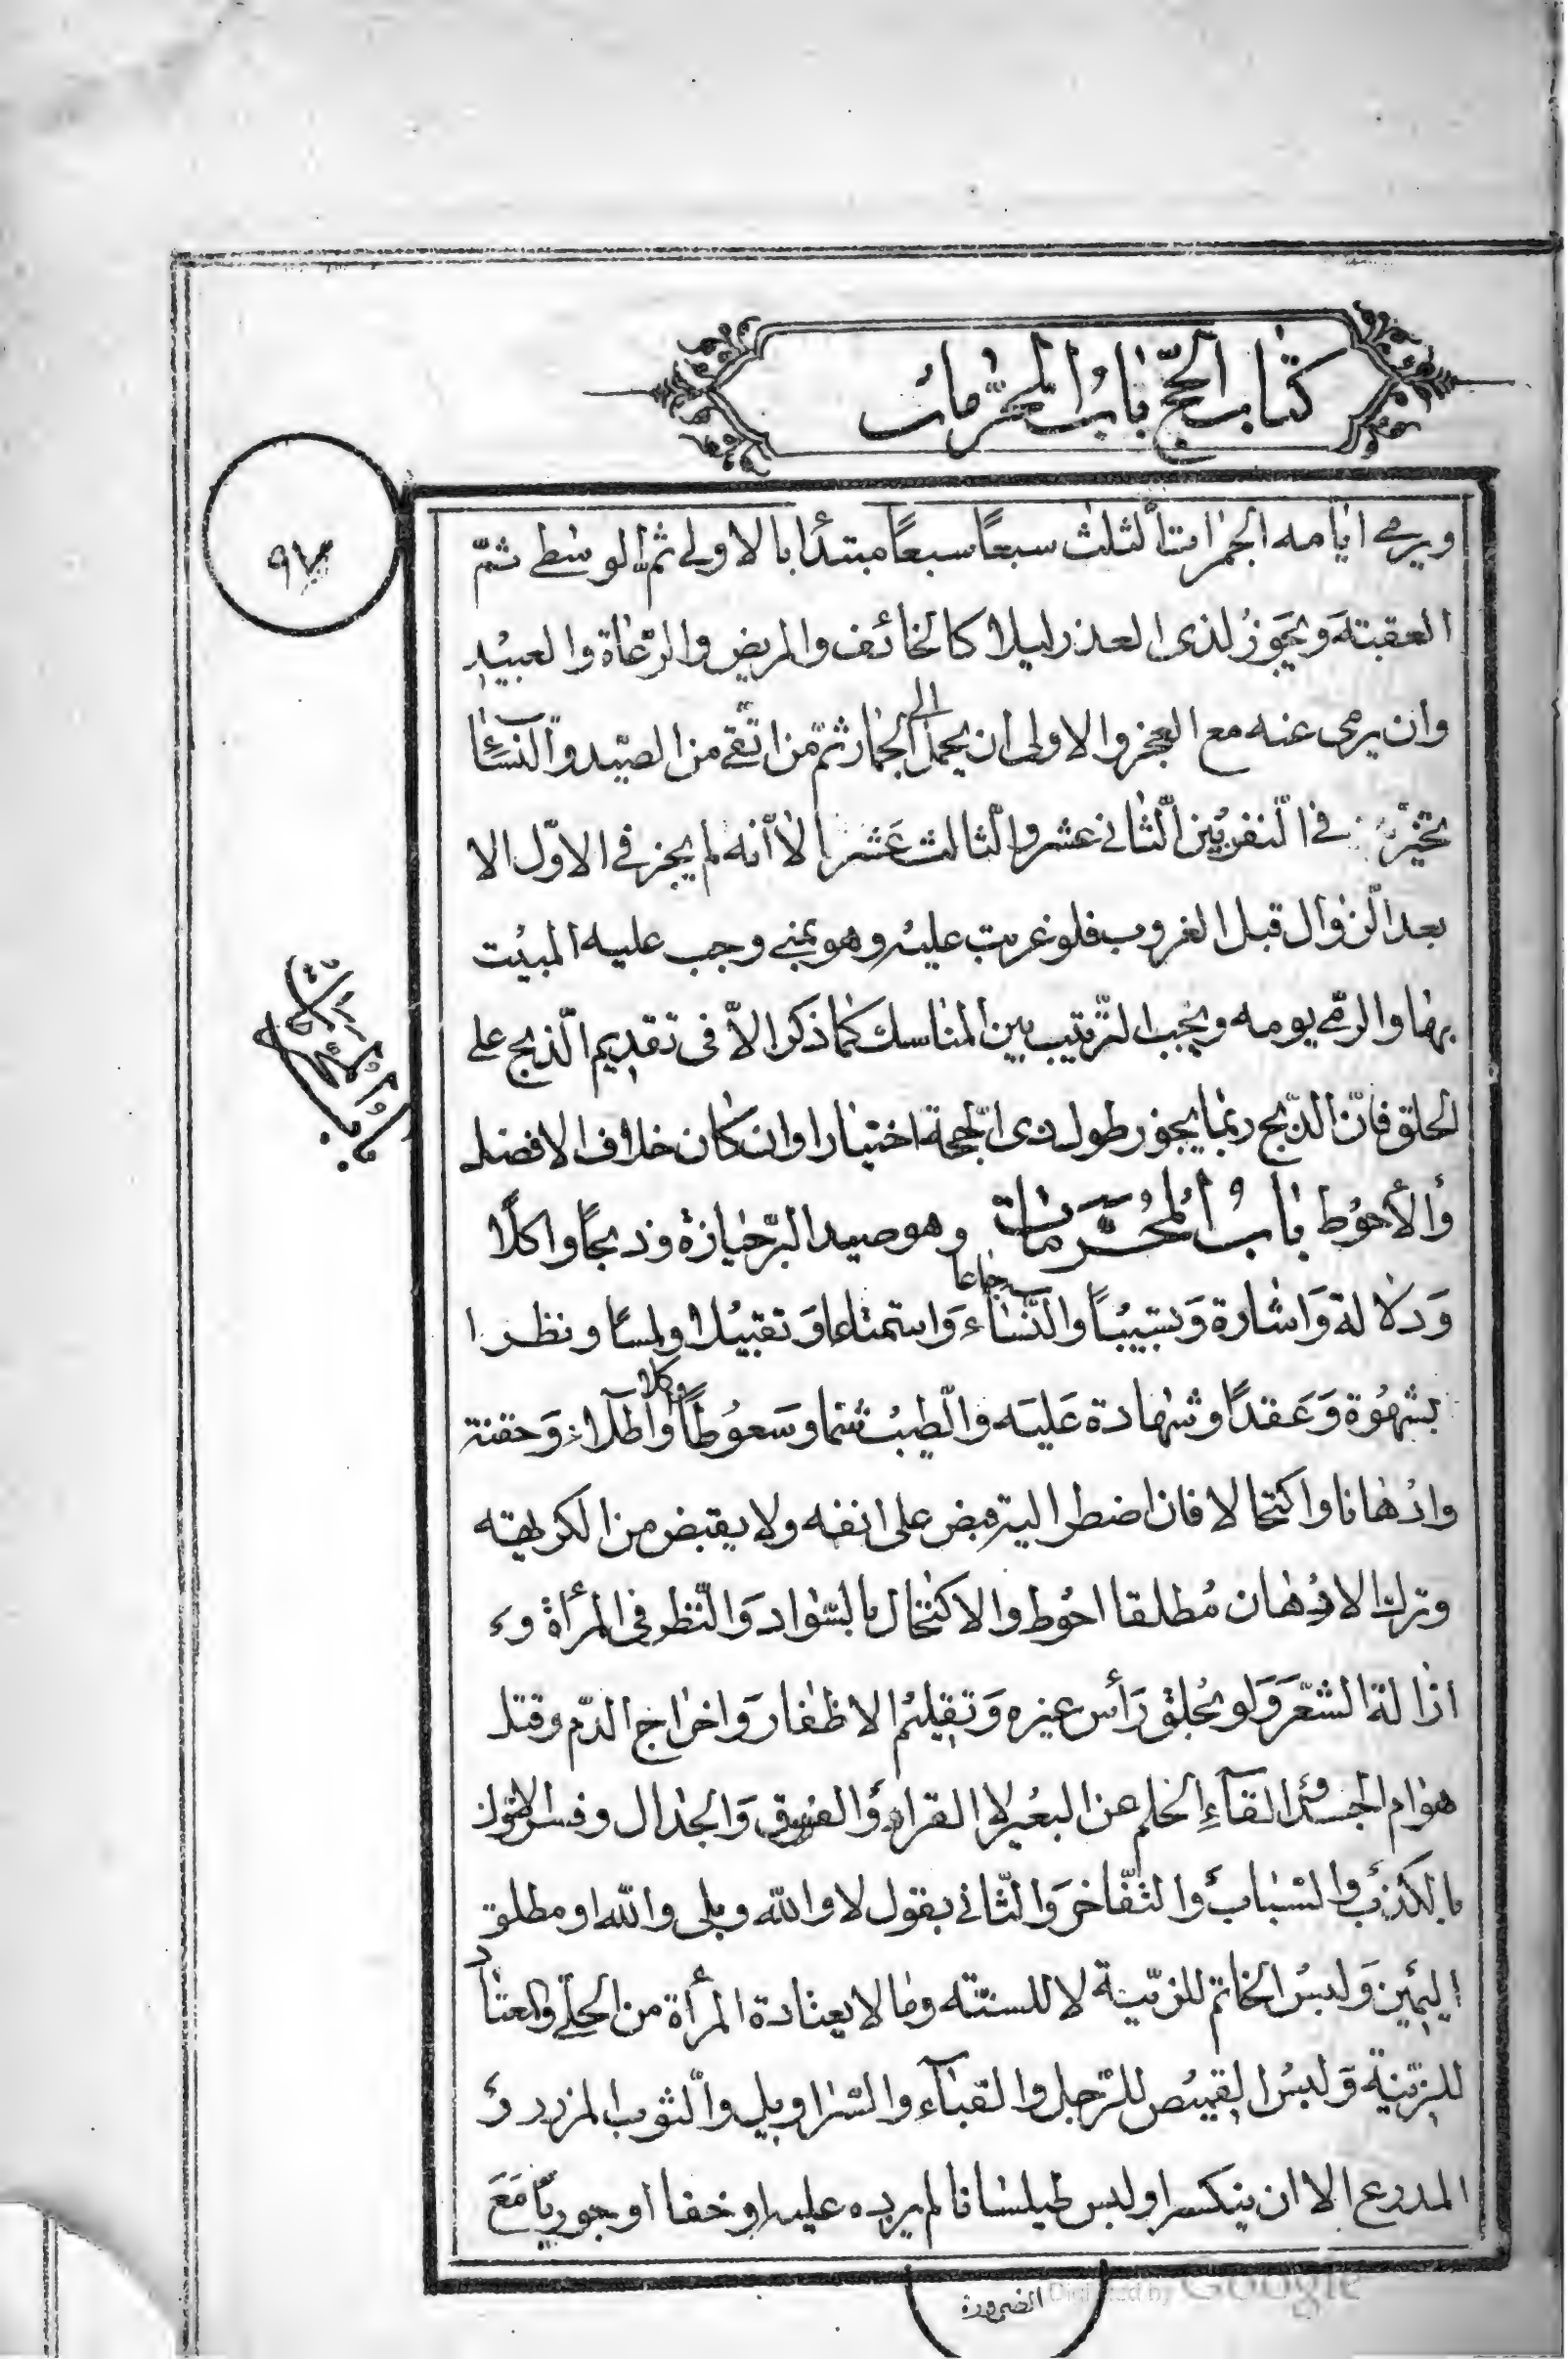 كتاب الحجّ باب المحرّمات
٩٧
ويرمي ايامه الجمرات الثلث سبعاً سبعاً مبتدأ بالاولى ثم الوسطى ثمّ
العقبته ويجوز لذى العذر ليلا كالخائف والمريض والرّعاة والعبيد
وان يرمى عنه مع العجز والاولى ان يحمل الى الجمار ثمّ من اتّقى من الصيد والنسآء
يتخيّر في النفريين الثاني عشر والثالث عشر الا أنه لم يجز في الاوّل الا
بعد الزوال قبل الغروب فلو غربت عليه وهو بمنى وجب عليه المبيت
بها والرمي يومه ويجب الترتيب بين المناسك كما ذكر الاّ فى تقديم الذبح على
الحلق فانّ الذّبح ربما يجوز طول ذى الحجة اختيارا وان كان خلاف الافضل
والأحوط باب المحرّمات وهو صيد البرّ حيازة وذبحاً واكلاً
ودلالة واشارة وتسبيباً والنّساء جماعا واستمتاعا وتقبيلا ولمسا ونظرا
بشهوة وعقداً وشهادة عليه والطيب شما وسعوطاً واكلا واطلاء وحقنة
وادهانا واكتحالا فان اضطر اليه قبض على انفه ولا يقبض من الكريهته
وترك الادهان مطلقا احوط والاكتحال بالسّواد والنّظر فى المرأة و
ازالة الشعر ولو بحلق رأس غيره وتقليم الاظفار واخراج الدّم وقتل
هوام الجسد والقآء الحلم عن البعير لا القراد والفسوق والجدال وفسر الاول
بالكذب والسّباب والتّفاخر والثّاني بقول لا والله وبلى والله او مطلق
اليمين ولبس الخاتم للزّينة لا للسنّته وما لا يعتادة المرأة من الحلى والمعتاد
للزّينة ولبس القميص للرّجل والقبآء والسّراويل والثوب المزرر و
المدرع الا ان ينكسر او لبس طيلسانا لم يزره عليه او خفا او جوربا مع
الضرورة
باب المحرّمات
Digitized by Google